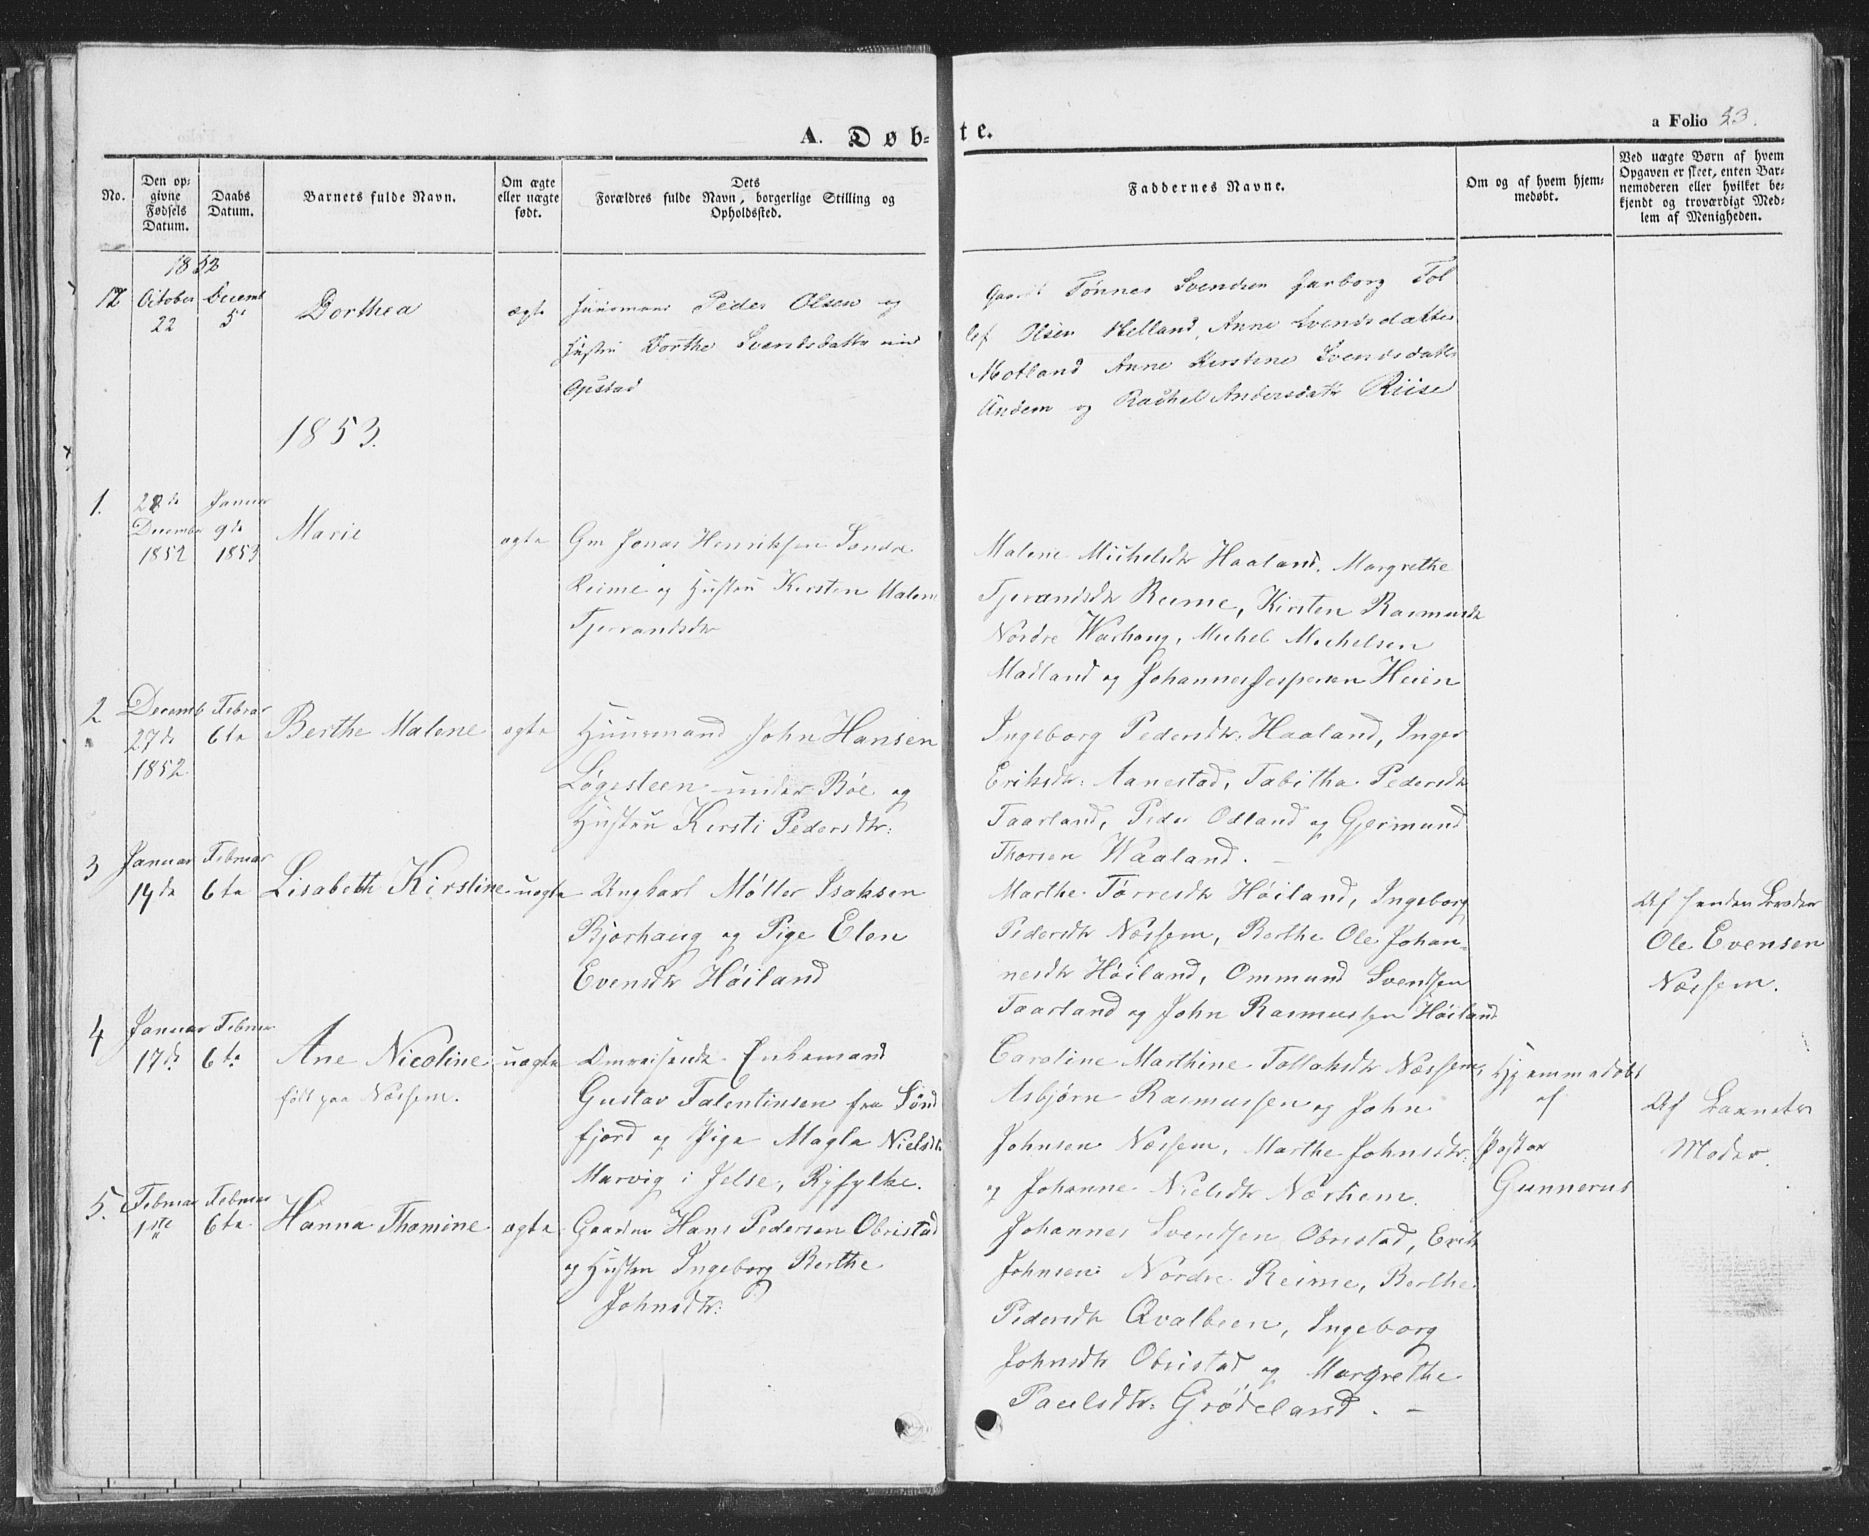 A. Døb-te.
a Folio 53.
No.
Den op-
givne
Fødsels
Datum.
Daabs
Datum.
Barnets fulde Navn.
Om ægte
eller uægte
født.
Dets
Forældres fulde Navn, borgerlige Stilling og
Opholdssted.
Faddernes Navne.
Om og af hvem hjem-
medøbt.
Ved uægte Børn af hvem
Opgaven er skeet, enten Bar-
nemoderen eller hvilket be-
kjendt og troværdigt Med-
lem af Menigheden.
1852
12 October 22
Decemb 5t
Dorthea
ægte
Huusmand Peder Olsen og
Hustru Dorthe Svendsdatter
Opstad
Tønnes Svendsen Tol
lef Olsen Helland, Anne Svendsdatter
Motland Anne Kerstine Svendsdatter
Undem og Rachel Andersdatr Riise
1853.
1.
December
1852
Januar
9de
1853
Marie
ægte
Gm Jonas Henriksen Søndre
Reime og Hustru Kirsten Malene
Tjerandsdtr
Malene Michelsdtr Haaland, Margrethe
Tjerandsdtr Reime, Kirsten Rasmusdtr
Nordre Warhaug, Michel Michelsen
Madland og Johannes Jespersen Heien
2
Decemb
27de
1852.
Februar
6te
Berthe Malene
ægte
Huusmand John Hansen
Løgesteen under Bøe og
Hustru Kirsti Pedersdtr:
Ingeborg Pedersdtr: Haaland, Inger
Eriksdtr: Aanestad, Tabitha Pedersdtr
Taarland, Peder Odland og Gjermund
Thorsen Waaland. –
3
Januar
14de
Februar
6te
Lisabeth Kirstine
uægte
Ungkarl Møller Isaksen
Bjorhaug og Pige Elen
Evensdtr Høiland
Marthe Tørresdtr Høiland, Ingeborg
Pedersdtr Næssem, Berthe Ole Johan-
nesdtr Høiland, Ommund Svendsen
Taarland og John Rasmussen Høiland
Af hendes Broder
Ole Evensen
Næssem.
4
Januar
17de
Februar
6te
Ane Nicoline
født paa Næssem.
uægte
Omreisende Enkemand
Gustav Talentinsen fra Sønd
fjord og Pige Magla Nielsdtr
Marvig i Jelse, Ryfylke.
Caroline Marthine Tollaksdtr Næssem,
Asbjørn Rasmussen og John
Johnsen Næssem, Marthe Johnsdtr:
og Johanne Nielsdtr Nærhem.
Hjemmedøbt
af
Pastor
Gunnerus
Af Barnets
Moder.
5.
Februar
1ste
Februar
6te
Hanna Thomine
ægte
Gaardm Hans Pedersen Obrestad
og Hustru Ingeborg Berthe
Johnsdtr:
Johannes Svendsen Obrestad, Erik
Johnsen Nordre Reime, Berthe
Pedersdtr Qvalbeen, Ingeborg
Johnsdtr Obrestad og Margrethe
Paulsdtr: Grødeland. –